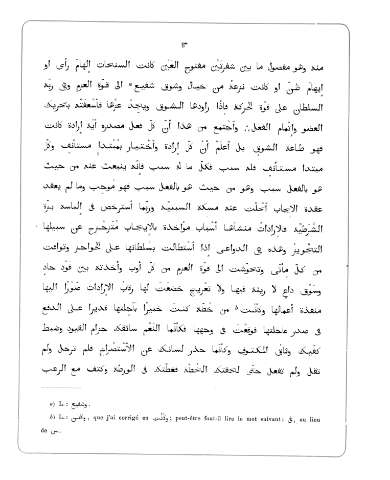 ١٣
منه وهو مفصول ما بين شفرتَيْن مفتوح العَيْن كانت السنحات إلهامَ رأى او
إيهامَ ظنّ او كانت نزعةً من خيال وشوق شفيع الى قوّة العزم وفى ربّة
السلطان على قوّة الحركة فاذا راودها الشوق وجد عزّها فأسعفَتْه بتحريك
العضو وإتمام الفعل واجتمع من هذا أنّ كلّ فعل مصدره أيّة إرادة كانت
فهو طاعة الشوق بل اعلم أنّ كلّ إرادة واختيار مبتدأ مستأنف وكلّ
مبتدا مستأنف فله سبب فكلّ ما له سبب فانّه ينبعث عنه من حيث
هو بالفعل سبب وهو من حيث هو بالفعل سبب فهو موجب وما لم يعقد
عقدة الايجاب انحلّت عنه مسكة السببيّة وربّما استرخص فى
الشرطيّة فالارادات منشاها أسباب مؤاخذة بالايجاب عن سبيلها
التجويز وهذه هى الدواعى إذا استطالت بسلطانها على الخواطر وتوافت
من كلّ مأتى وتحوّشت الى قوّة العزم من كلّ أوب وأخذته بين قود حادٍ
وسوق داعٍ لا ريثة فيها ولا تعريج خضعت لها رقاب الارادات صورًا اليها
منفذة أعمالها من خطّة كنت خبيرًا بآجلتها قديرًا على الدفع
فى صدر عاجلتها فوقعت فى وجهها فكأنّما النَّعَم سائقك حزام القيود وضبط
كفَّيك وثاق المكتوف وكأنّما خدر لسانك عن الاستصراخ فلم ترحل ولم
تقل ولم تفعل حتّى لحقتك الخطّة فغطّتك فى الورطة وكنف مع الرعب
a) L: وشفيع.
b) L: , que j'ai corrigé en ; peut-être faut-il lire le mot suivant: فى, au lieu
de من.